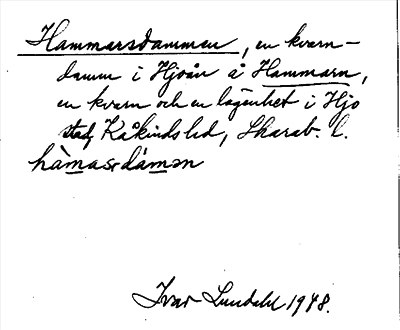 Hammarsdammen, en kvarn-
damm i Hjoån å Hammarn,
en kvarn och en lägenhet i Hjo
stad, Kåkinds hd, Skarab. l.
hàmasdámən
Ivar Lundahl 1948.